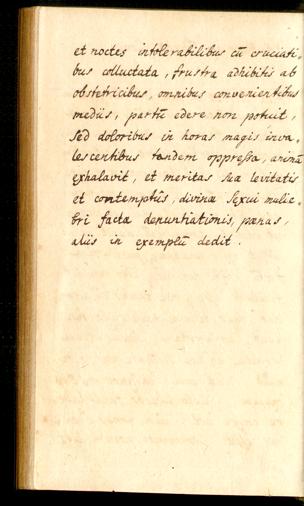 et noctes intolerabilibus cū cruciati-
bus colluctata, frustra adhibitis ab
obstetricibus, omnibus convenientibus
mediis, partū edere non potuit,
sed doloribus in horas magis inva-
lescentibus tandem oppressa, animā
exhalavit, et meritas suæ levitatis
et contemptûs, divinæ sexui mulie-
bri factæ denuntiationis, pœnas,
aliis in exemplū dedit.